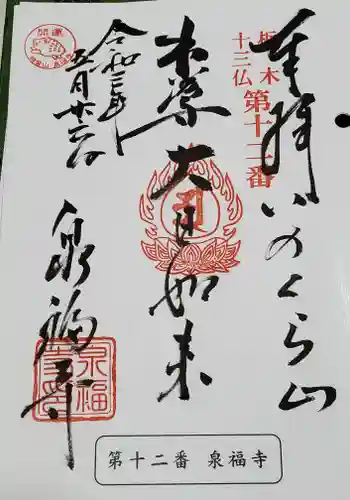 奉拝 いのくら山
栃木
十三仏
第十二番
本尊 大日如来
令和三年
五月廿
泉福寺
泉福
寺
第十二番 泉福寺